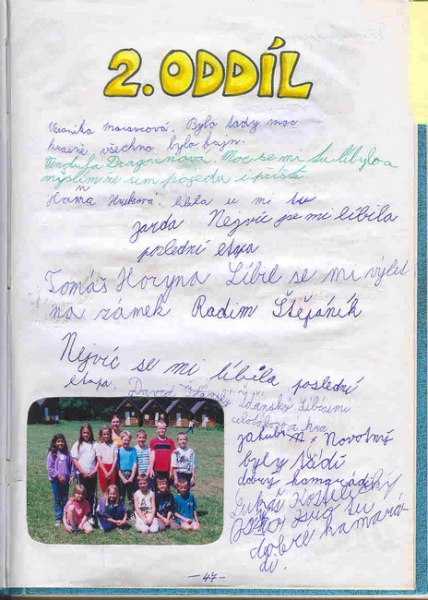 2. ODDÍL
Veronika Moravcová. Bylo tady moc
krásně všechno bylo bajn.
Vendula Dragounová. Moc se mi tu líbylo a
myslim ze sem pojedu i příště
Hana Hruková. líbila se mi tu
Jarda Nejvíc se mi líbila
poslední etapa
Tomáš Horyna Líbil se mi výlet
na zámek Radim Štěpáník
Nejvíc se mi líbila poslední
etapa. David Žďánský Líbí se mi
celotáborová hra
jakub N. Novotný
byly tadi
dobrý kamarádi
Lukáš Kostelecký
su
dobré kamará
di.
-47-